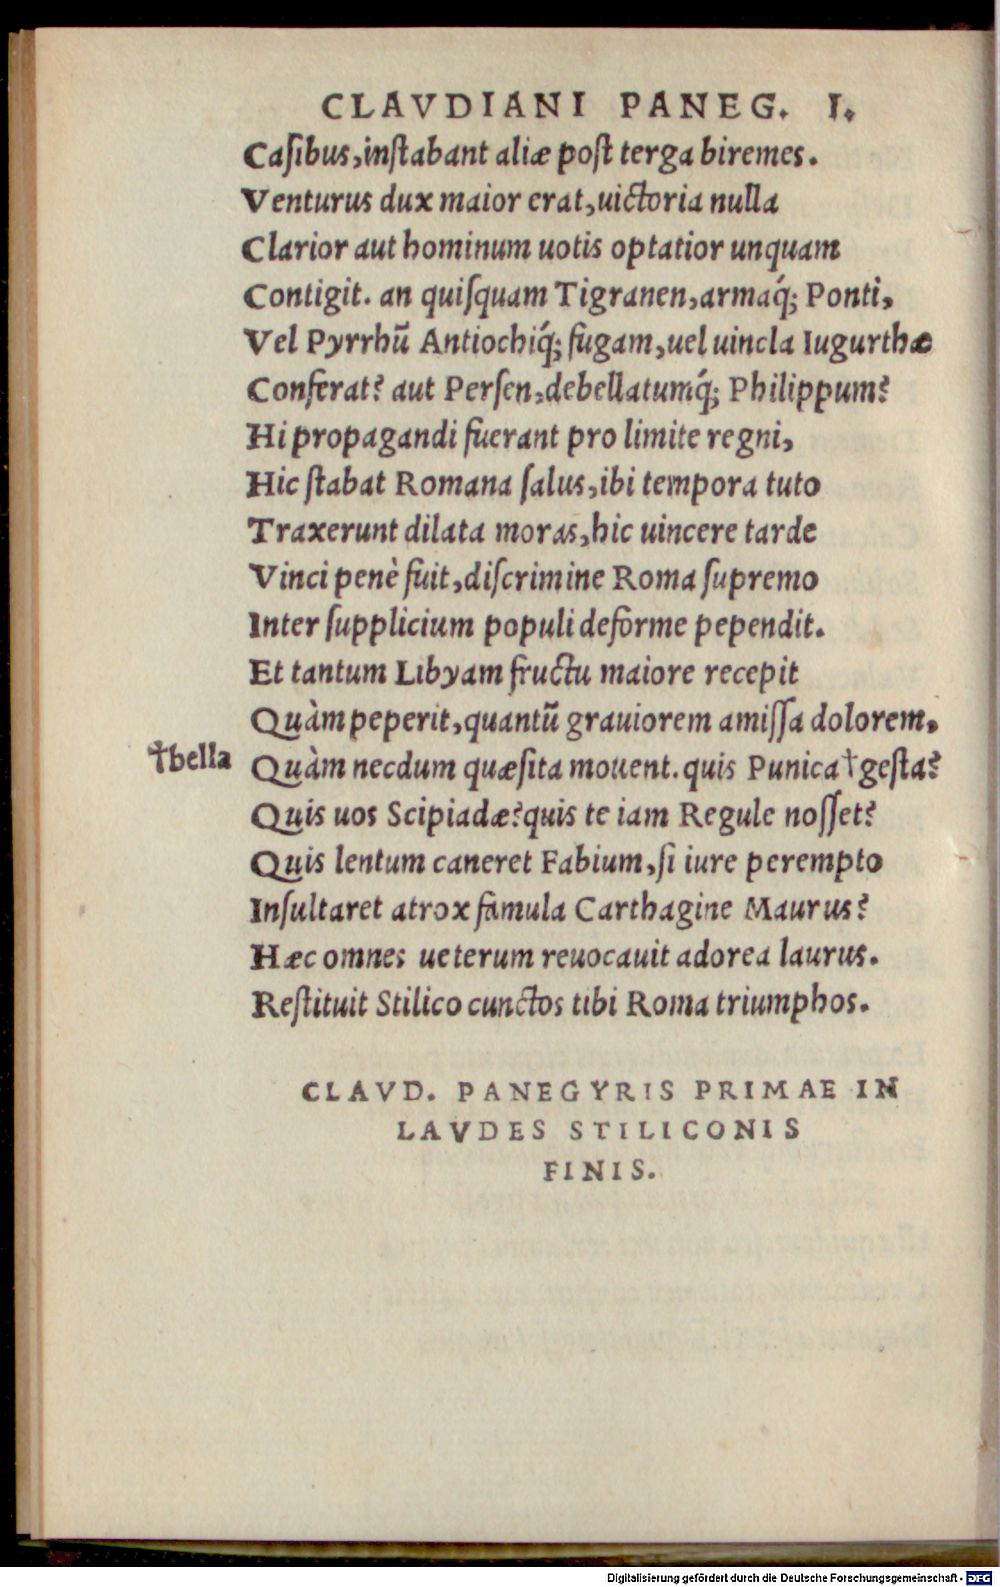 CLAVDIANI PANEG. I.
Casibus, instabant aliæ post terga biremes.
Venturus dux maior erat, uictoria nulla
Clarior aut hominum uotis optatior unquam
Contigit. an quisquam Tigranen, armaq́; Ponti,
Vel Pyrrhū Antiochiq́; fugam, uel uincla Iugurthæ
Conferat? aut Persen, debellatumq́; Philippum?
Hi propagandi fuerant pro limite regni,
Hic stabat Romana salus, ibi tempora tuto
Traxerunt dilata moras, hic uincere tarde
Vinci penè fuit, discrimine Roma supremo
Inter supplicium populi deforme pependit.
Et tantum Libyam fructu maiore recepit
Quàm peperit, quantū grauiorem amissa dolorem,
†bella Quàm necdum quæsita mouent. quis Punica †gesta?
Quis uos Scipiadæ? quis te iam Regule nosset?
Quis lentum caneret Fabium, si iure perempto
Insultaret atrox famula Carthagine Maurus?
Hæc omnes ueterum reuocauit adorea laurus.
Restituit Stilico cunctos tibi Roma triumphos.
CLAVD. PANEGYRIS PRIMAE IN
LAVDES STILICONIS
FINIS.
Digitalisierung gefördert durch die Deutsche Forschungsgemeinschaft - DFG